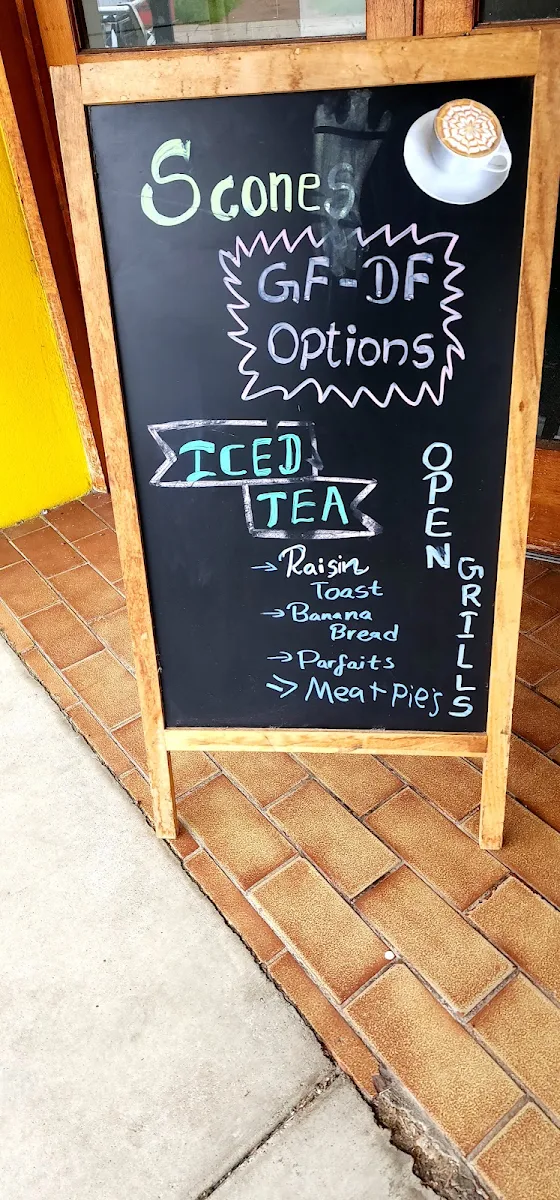 Scones
GF-DF
Options
ICED
TEA
OPEN
GRILLS
→ Raisin
Toast
→ Banana
Bread
→ Parfaits
⇒ Meat pie's